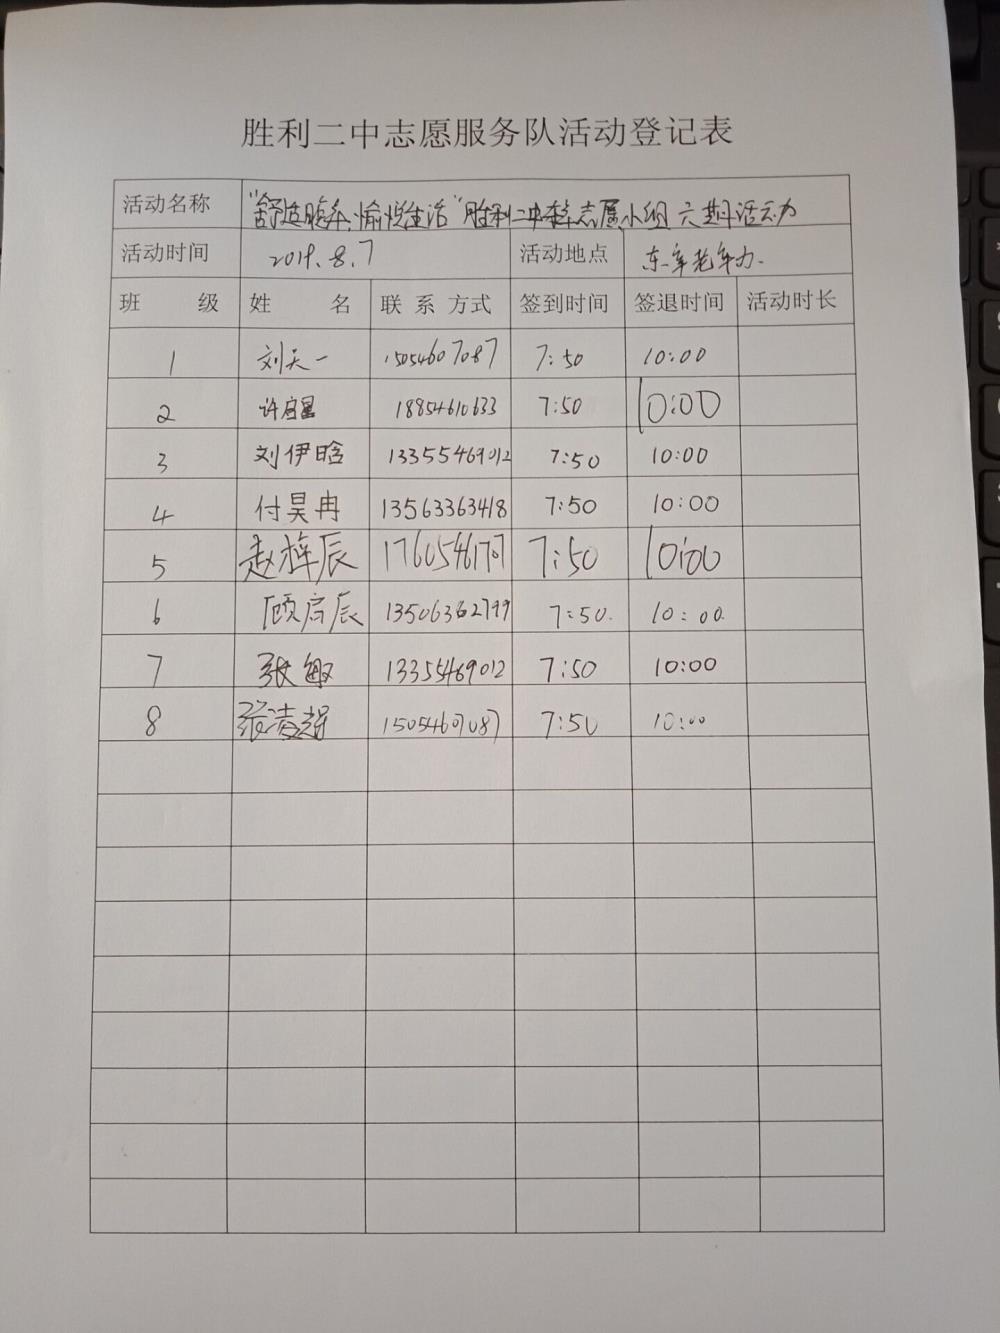 胜利二中志愿服务队活动登记表
活动名称 "舒适晚年、愉悦生活"胜利二中 志愿小组 六期活动
活动时间 2019.8.7 活动地点 东 老年办.
班 级 姓 名 联 系 方式 签到时间 签退时间 活动时长
1 刘天一 15054607087 7:50 10:00
2 许启 18854610633 7:50 10:00
3 刘伊晗 13355469012 7:50 10:00
4 付昊冉 13563363418 7:50 10:00
5 赵梓辰 17605461707 7:50 10:00
6 顾启辰 13506362799 7:50. 10:00.
7 张敏 13355469012 7:50 10:00
8 张凌 15054607087 7:50 10:00